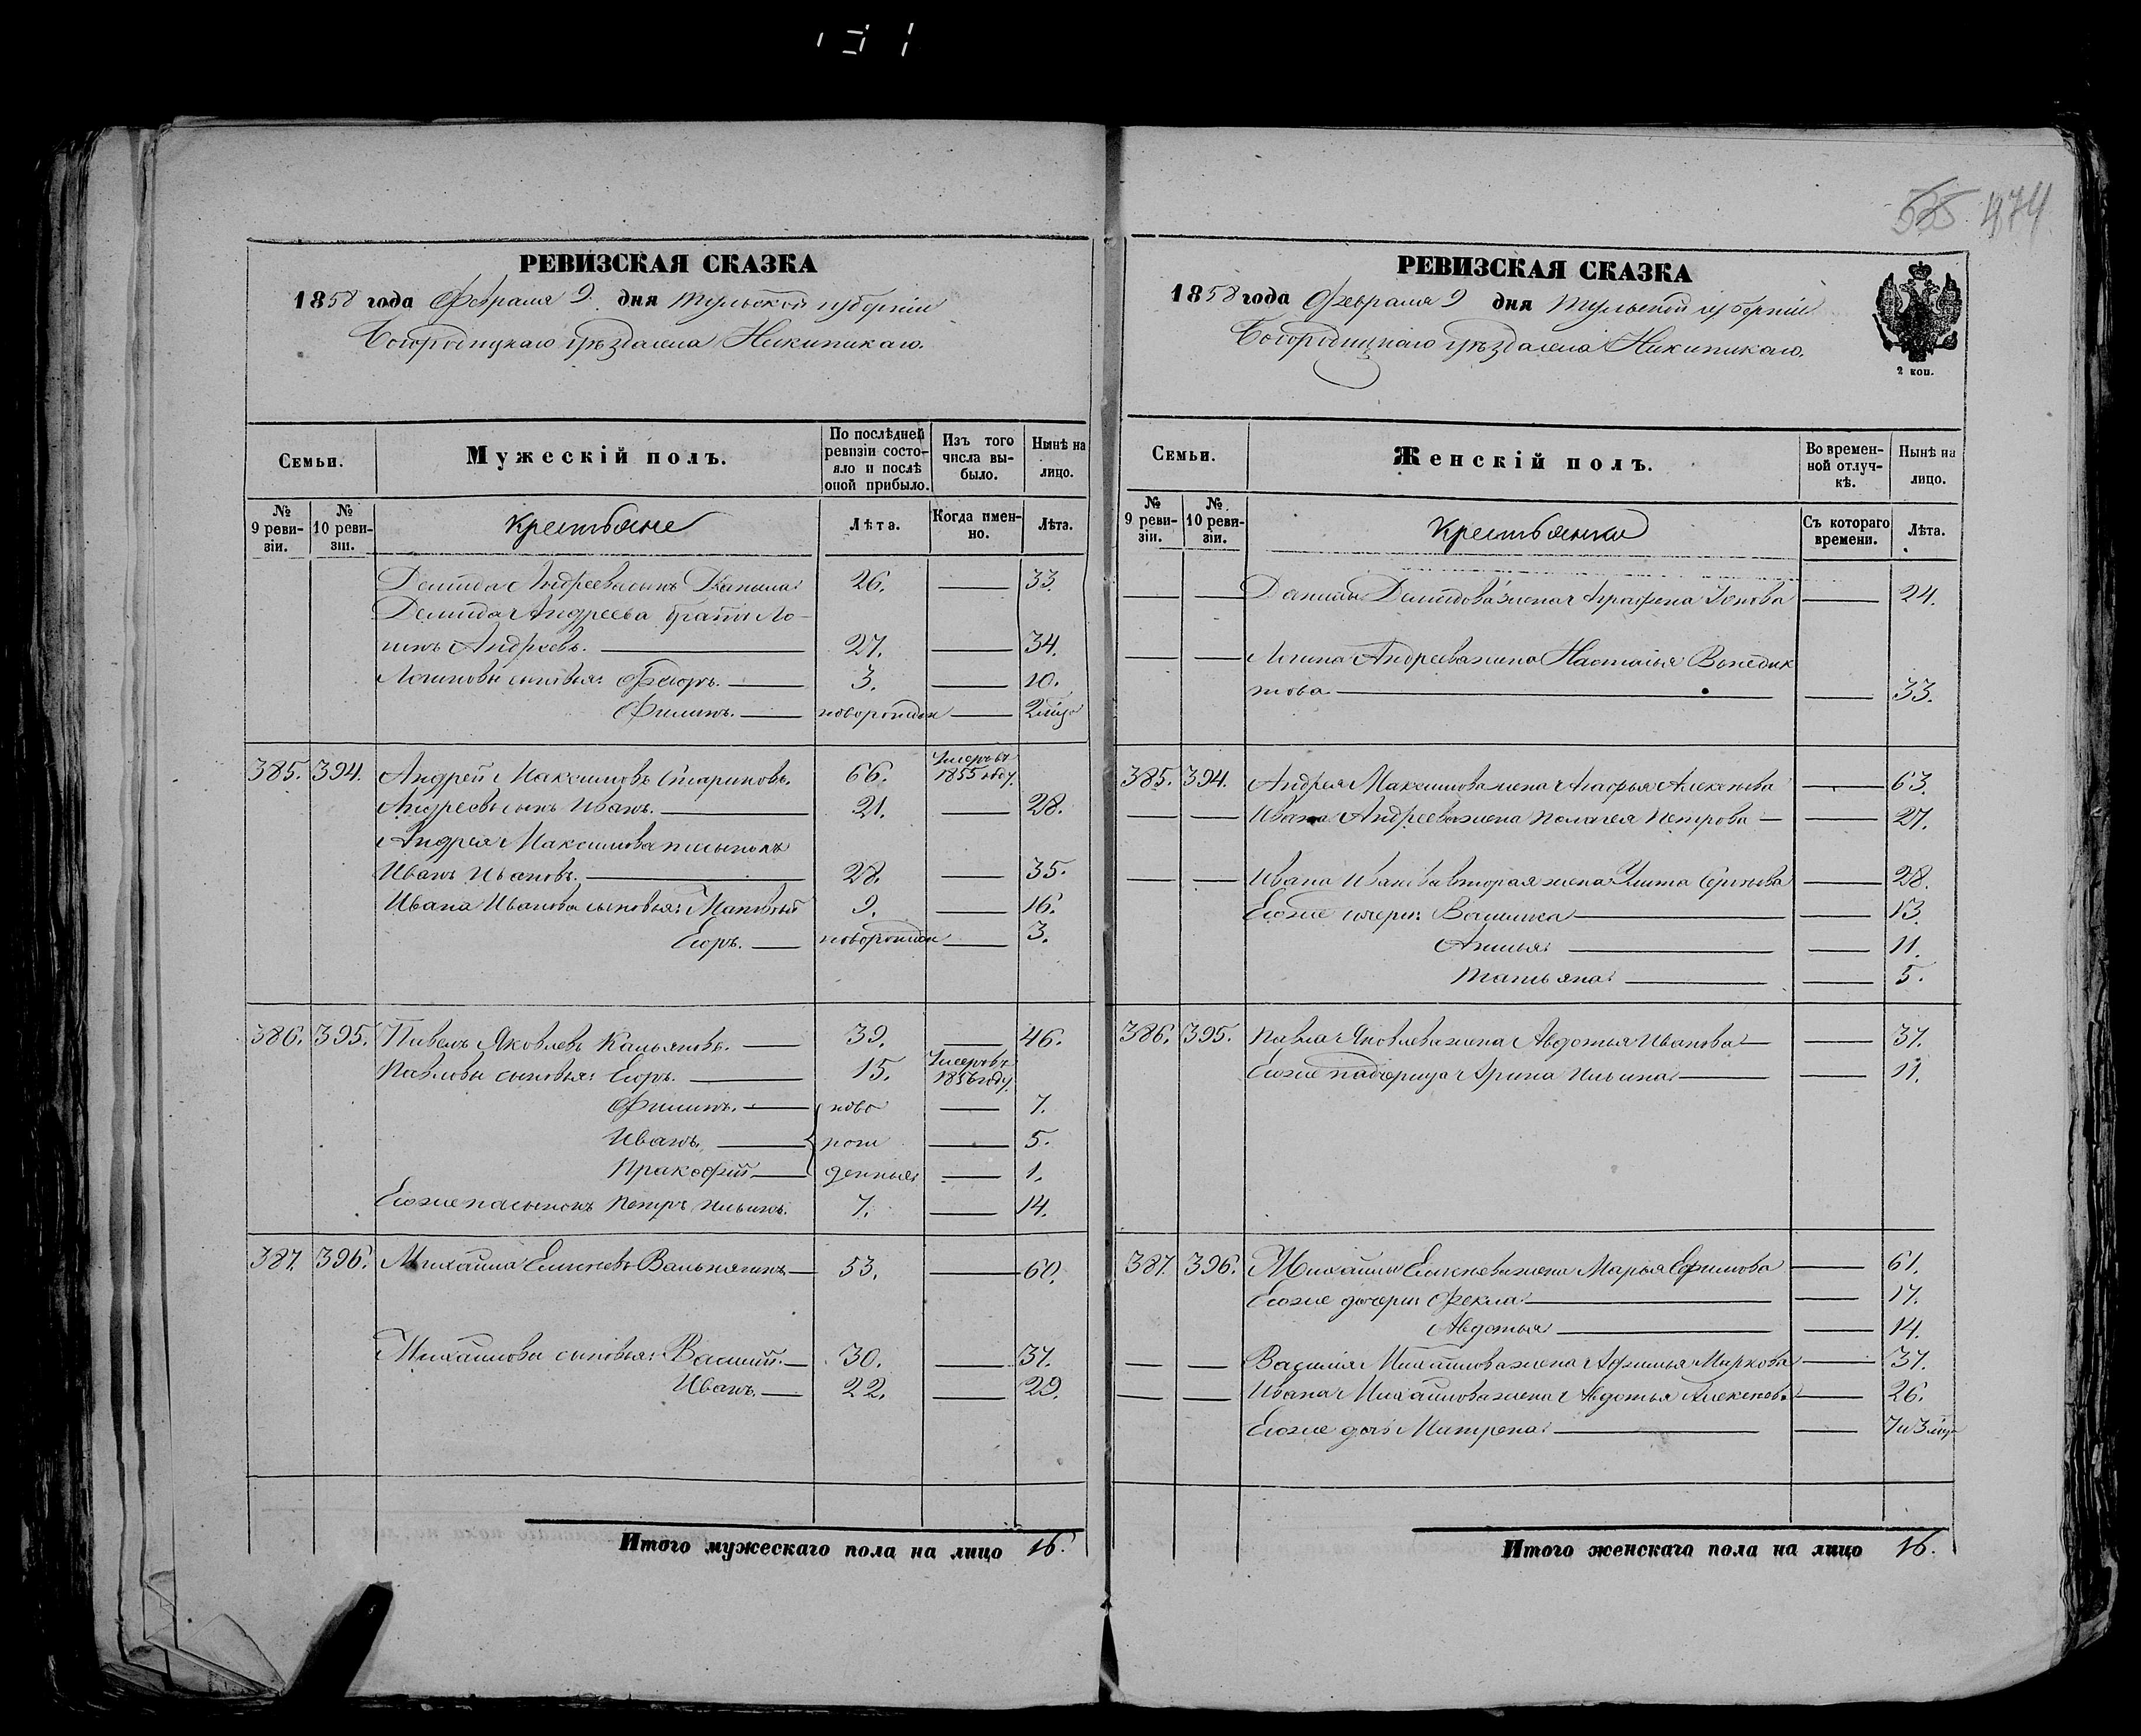 535 474
РЕВИЗСКАЯ СКАЗКА
1858 года Февраля 9 дня Тульской губернии
Богородицкаго уѣзда села Никитскаго.
Семьи.
Мужескій полъ.
По послѣдней ревизіи состояло и послѣ оной прибыло.
Изъ того числа выбыло.
Нынѣ на лицо.
№ 9 ревизіи.
№ 10 ревизіи.
Крестьяне
Лѣта.
Когда именно.
Лѣта.
Демида Андреева сынъ Данила 26. — 33.
Демида Андреева братъ Ло-
гинъ Андреевъ. — 27. — 34.
Логиновы сыновья: Федоръ. — 3. — 10.
Филипъ. — новорожден — 2 мѣс
385. 394. Андрей Максимовъ Стариковъ. 66. Умеръ въ 1855 году.
Андреевъ сынъ Иванъ. — 21. — 28.
Андрея Максимова пасынокъ
Иванъ Ивановъ. — 28. — 35.
Ивана Иванова сыновья: Матвѣй 9. — 16.
Егоръ. — новорожден — 3.
386. 395. Павелъ Яковлевъ — 39. — 46.
Павловы сыновья: Егоръ. — 15. Умеръ въ 1856 году.
Филипъ. — ново — 7.
Иванъ. — рож — 5.
Пракофій — денные — 1.
Егоже пасынокъ Петръ Ильинъ. 7. — 14.
387. 396. Михайла — 53. — 60.
Михайловы сыновья: Василій. — 30. — 37.
Иванъ. — 22. — 29.
Итого мужескаго пола на лицо 16.
РЕВИЗСКАЯ СКАЗКА
1858 года Февраля 9 дня Тульской губерніи
Богородицкаго уѣзда села Никитскаго.
2 коп.
Семьи.
Женскій полъ.
Во временной отлучкѣ.
Нынѣ на лицо.
№ 9 ревизіи.
№ 10 ревизіи.
Крестьянки
Съ котораго времени.
Лѣта.
— — Данилы Демидова жена Аграфена — 24.
— — Логина Андреева жена Настасья Венедик
това — 33.
385. 394. Андрея Максимова жена Агафья Алексѣева — 63.
— — Ивана Андреева жена Пелагея Петрова — — 27.
— — Ивана Иванова вторая жена Улита Сергѣева — 28.
Егоже дочери: Василиса — — 13.
Анисья — — 11.
Татьяна — — 5.
386. 395. Павла Яковлева жена Авдотья Иванова — — 37.
Егоже падчерица Арина Ильина — — 11.
387. 396. Михайлы жена Марья Ефимова — 61.
Егоже дочери: Фекла — — 17.
Авдотья — — 14.
— — Василія Михайлова жена Афимья Маркова — 37.
— — Ивана Михайлова жена Авдотья Алексеева — 26.
Егоже дочь Матрена — — 7 и 3 мѣс
Итого женскаго пола на лицо 16.